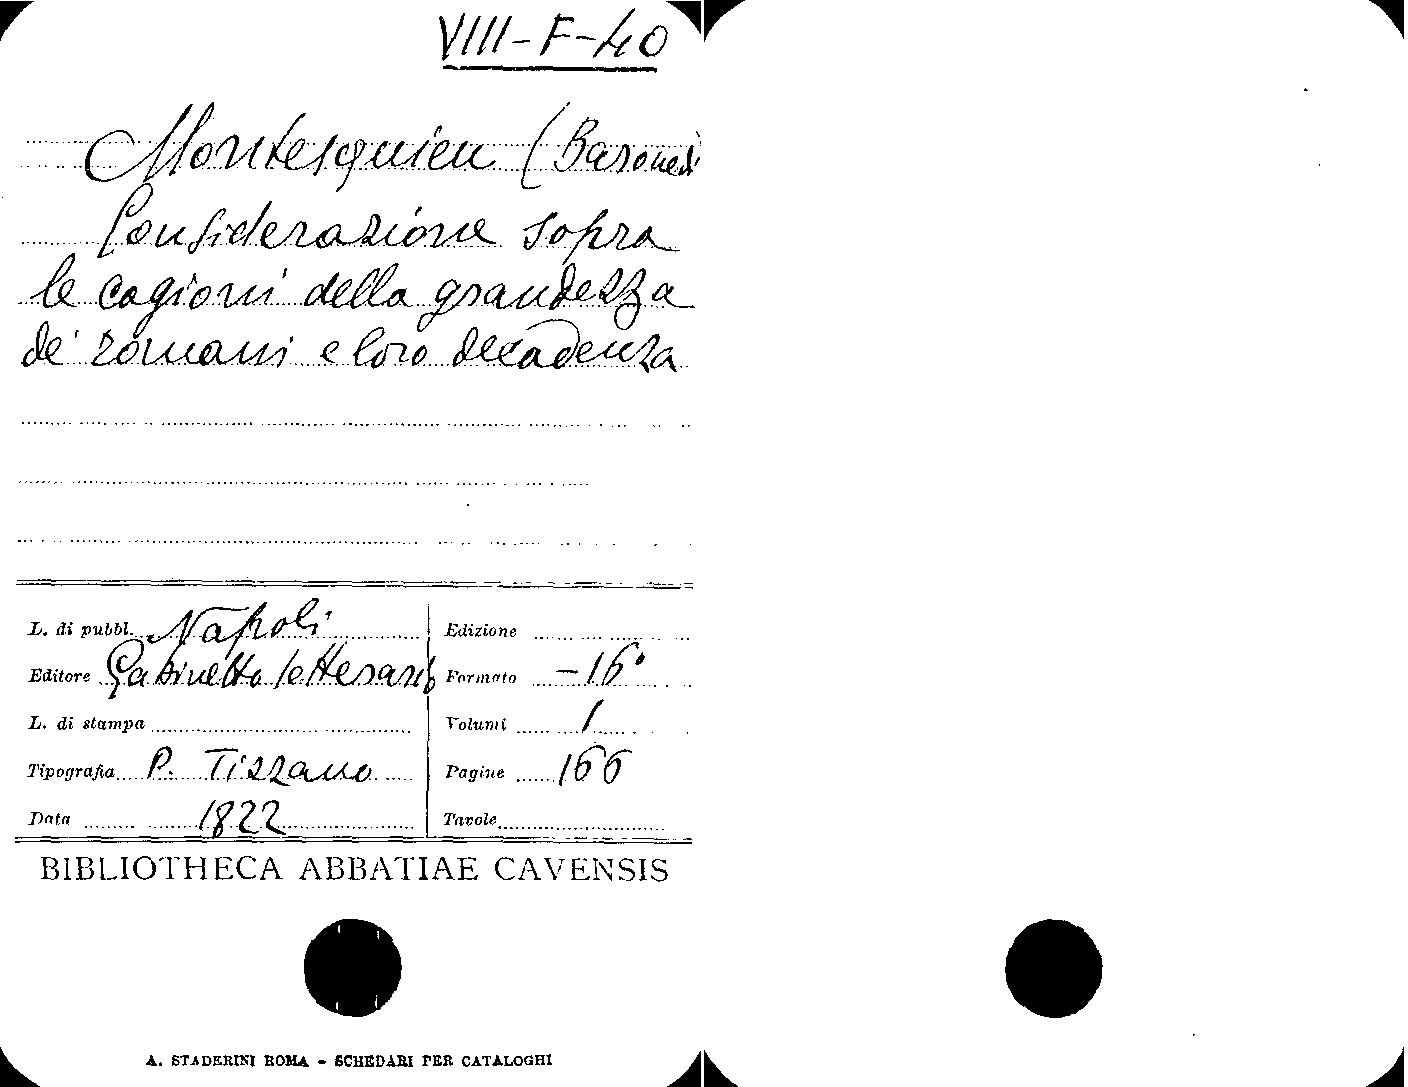 VIII-F-40
Montesquieu (Barone di
Considerazione sopra
le cagioni della grandezza
de' romani e loro decadenza
L. di pubbl. Napoli
Edizione
Editore Gabinetto letterario
Formato -16°
L. di stampa
Volumi 1
Tipografia P. Tizzano
Pagine 166
Data 1822
Tavole
BIBLIOTHECA ABBATIAE CAVENSIS
A. STADERINI ROMA - SCHEDARI PER CATALOGHI